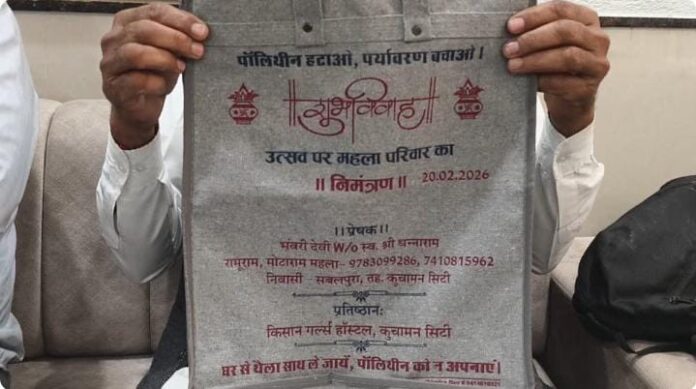 पॉलिथीन हटाओ, पर्यावरण बचाओ।
॥शुभविवाह॥
उत्सव पर महला परिवार का
॥ निमंत्रण॥ 20.02.2026
।।प्रेषक।।
भंवरी देवी W/o स्व. श्री घन्नाराम
रामूराम, मोटाराम महला- 9783099286, 7410815962
निवासी - सबलपुरा, तह. कुचामन सिटी
प्रतिष्ठान:
किसान गर्ल्स हॉस्टल, कुचामन सिटी
घर से थैला साथ ले जायें, पॉलिथीन को न अपनाएं।